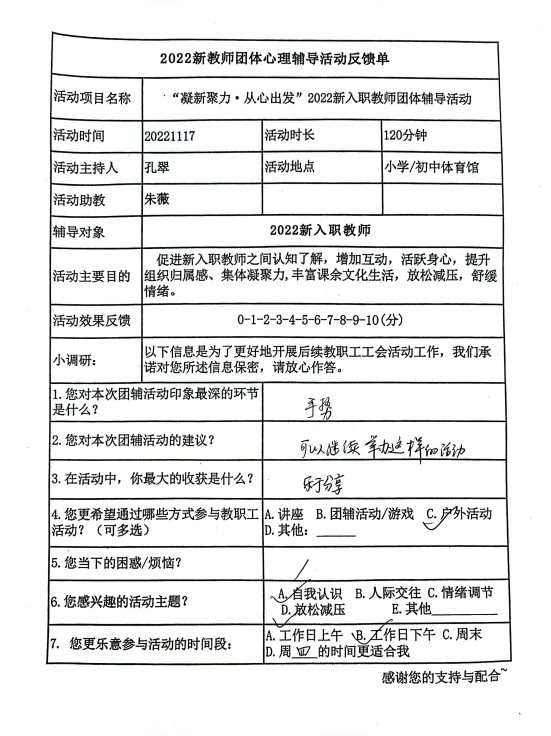 2022新教师团体心理辅导活动反馈单
活动项目名称 “凝新聚力·从心出发”2022新入职教师团体辅导活动
活动时间 20221117 活动时长 120分钟
活动主持人 孔翠 活动地点 小学/初中体育馆
活动助教 朱薇
辅导对象 2022新入职教师
活动主要目的 促进新入职教师之间认知了解，增加互动，活跃身心，提升
组织归属感、集体凝聚力,丰富课余文化生活，放松减压，舒缓
情绪。
活动效果反馈 0-1-2-3-4-5-6-7-8-9-10(分)
小调研： 以下信息是为了更好地开展后续教职工工会活动工作，我们承
诺对您所述信息保密，请放心作答。
1.您对本次团辅活动印象最深的环节
是什么？ 手势
2.您对本次团辅活动的建议？ 可以继续举办这样的活动
3.在活动中，你最大的收获是什么？ 乐于分享
4.您更希望通过哪些方式参与教职工
活动？（可多选） A.讲座 B.团辅活动/游戏 C.户外活动
D.其他：______
5.您当下的困惑/烦恼？ /
6.您感兴趣的活动主题？ A.自我认识 B.人际交往 C.情绪调节
D.放松减压 E.其他__________
7. 您更乐意参与活动的时间段： A.工作日上午 B.工作日下午 C.周末
D.周 四 的时间更适合我
感谢您的支持与配合~